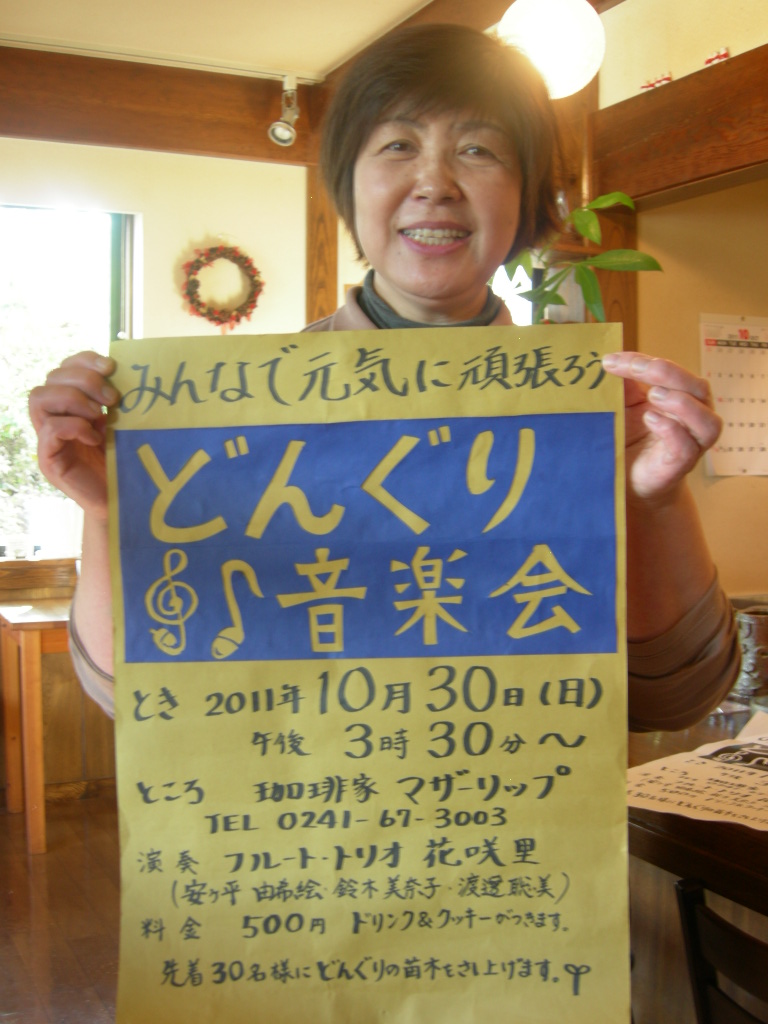 みんなで元気に頑張ろう
どんぐり
音楽会
とき 2011年10月30日(日)
午後 3時30分～
ところ 珈琲家 マザーリップ
TEL 0241-67-3003
演奏 フルート・トリオ 花咲里
(安ヶ平由希絵・鈴木美奈子・渡邊聡美)
料金 500円 ドリンク&クッキーがつきます。
先着30名様にどんぐりの苗木をさし上げます。
10